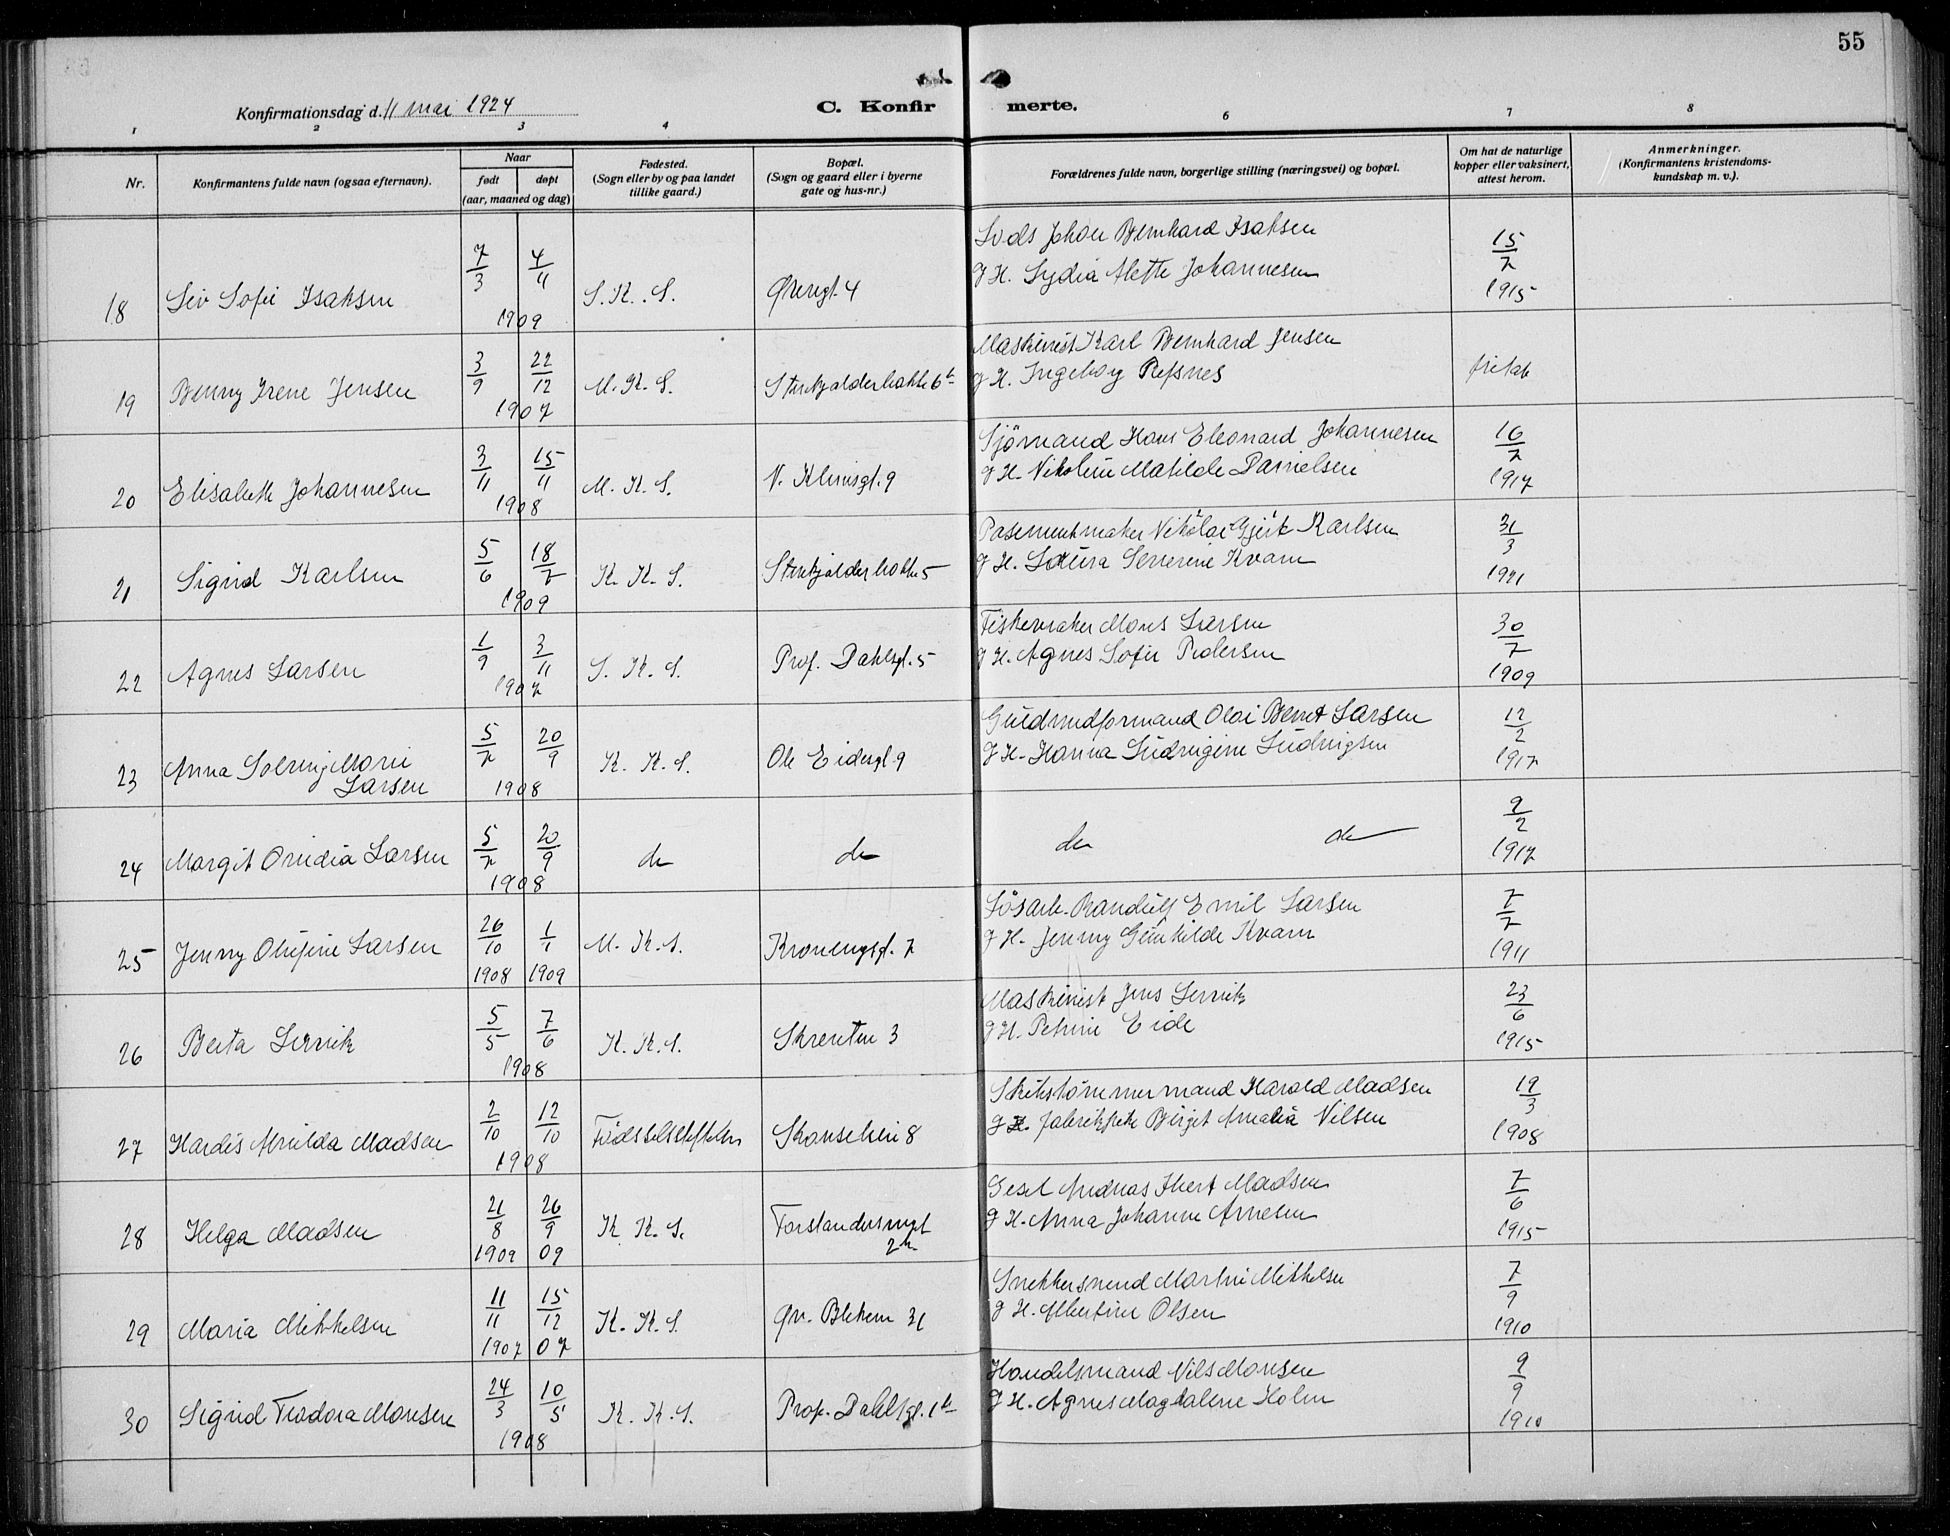 55
Konfirmationsdag d. 11 mai 1924
C. Konfirmerte.
1 2 3 4 6 7 8
Nr.
Konfirmantens fulde navn (ogsaa efternavn).
Naar
født døpt
(aar, maaned og dag)
Fødested.
(Sogn eller by og paa landet
tillike gaard.)
Bopæl.
(Sogn og gaard eller i byerne
gate og hus-nr.)
Forældrenes fulde navn, borgerlige stilling (næringsvei) og bopæl.
Om hat de naturlige
kopper eller vaksinert,
attest herom.
Anmerkninger.
(Konfirmantens kristendoms-
kundskap m. v.).
Lods Johan Bernhard Isaksen
g H. Lydia Alette Johannesen
18 Liv Sofie Isaksen 7/3 4/11 1909 S. K. S. Øvregt. 4 15/7 1915
Maskinist Karl Bernhard Jensen
g H. Ingeborg Refsnes
19 Benny Irene Jensen 3/9 22/12 1907 M. K. S. Steinkjelderbakke 6b fritat
Sjømand Hans Eleonard Johannesen
g H. Nikoline Matilde Danielsen
20 Elisabeth Johannesen 3/11 15/11 1908 M. K. S. N. 9 16/7 1917
Pasementmaker Nikolai Gjert Karlsen
g H. Laura Severine Kvam
21 Sigrid Karlsen 5/6 18/7 1909 K. K. S. Steinkjelderbakke 5 31/3 1921
Fiskevraker Mons Larsen
g H. Agnes Sofie Pedersen
22 Agnes Larsen 1/9 3/11 1907 S. K. S. Prof. Dahlsgt. 5 30/7 1909
Olai Bernt Larsen
g H. Hanna Ludvigine Ludvigsen
23 Anna Solveig Marie
Larsen 5/7 20/9 1908 K. K. S. Ole Eidesgt. 9 12/2 1917
24 Margit Ovidia Larsen 5/7 20/9 1908 do do do do 9/2 1917
Løsarb. Randulf Emil Larsen
g H. Jenny Gunhilde Kvam
25 Jenny Olufine Larsen 26/10 1908 1/1 1909 M. K. S. Kronengsgt. 7 7/7 1911
Maskinist Jens Lervik
g H. Petrine Eide
26 Berta Lervik 5/5 7/6 1908 K. K. S. Skrenten 3 23/6 1915
Skibstømmermand Harald Madsen
g H. fabrikpike Birgit Amalia Nilsen
27 Hardis Alvilda Madsen 2/10 12/10 1908 Fødselsstiftelsen Skanselien 8 19/3 1908
Andreas Madsen
g H. Anna Johanne Arnesen
28 Helga Madsen 21/8 1909 26/9 09 K K. S. Forstandersmgt
2b 7/6 1915
Snekkersvend Martin Mikkelsen
g H. Albertine Olsen
29 Maria Mikkelsen 11/11 1907 15/12 07 K. K. S. Øvr. Blekevei 31 7/9 1910
Handelsmand Nils Monsen
g H. Agnes Magdalene Holm
30 Sigrid Teodora Monsen 24/3 10/5 1908 K. K. S. Prof. Dahlsgt. 1b 9/9 1910